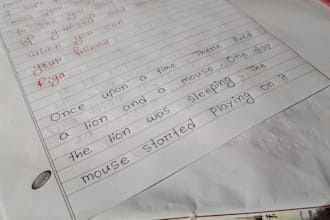 miss you
of yourself and
when you can
your friend
Riya
Once upon a time. There lived
a lion and a mouse. One day
the lion was sleeping. The
mouse started playing on it